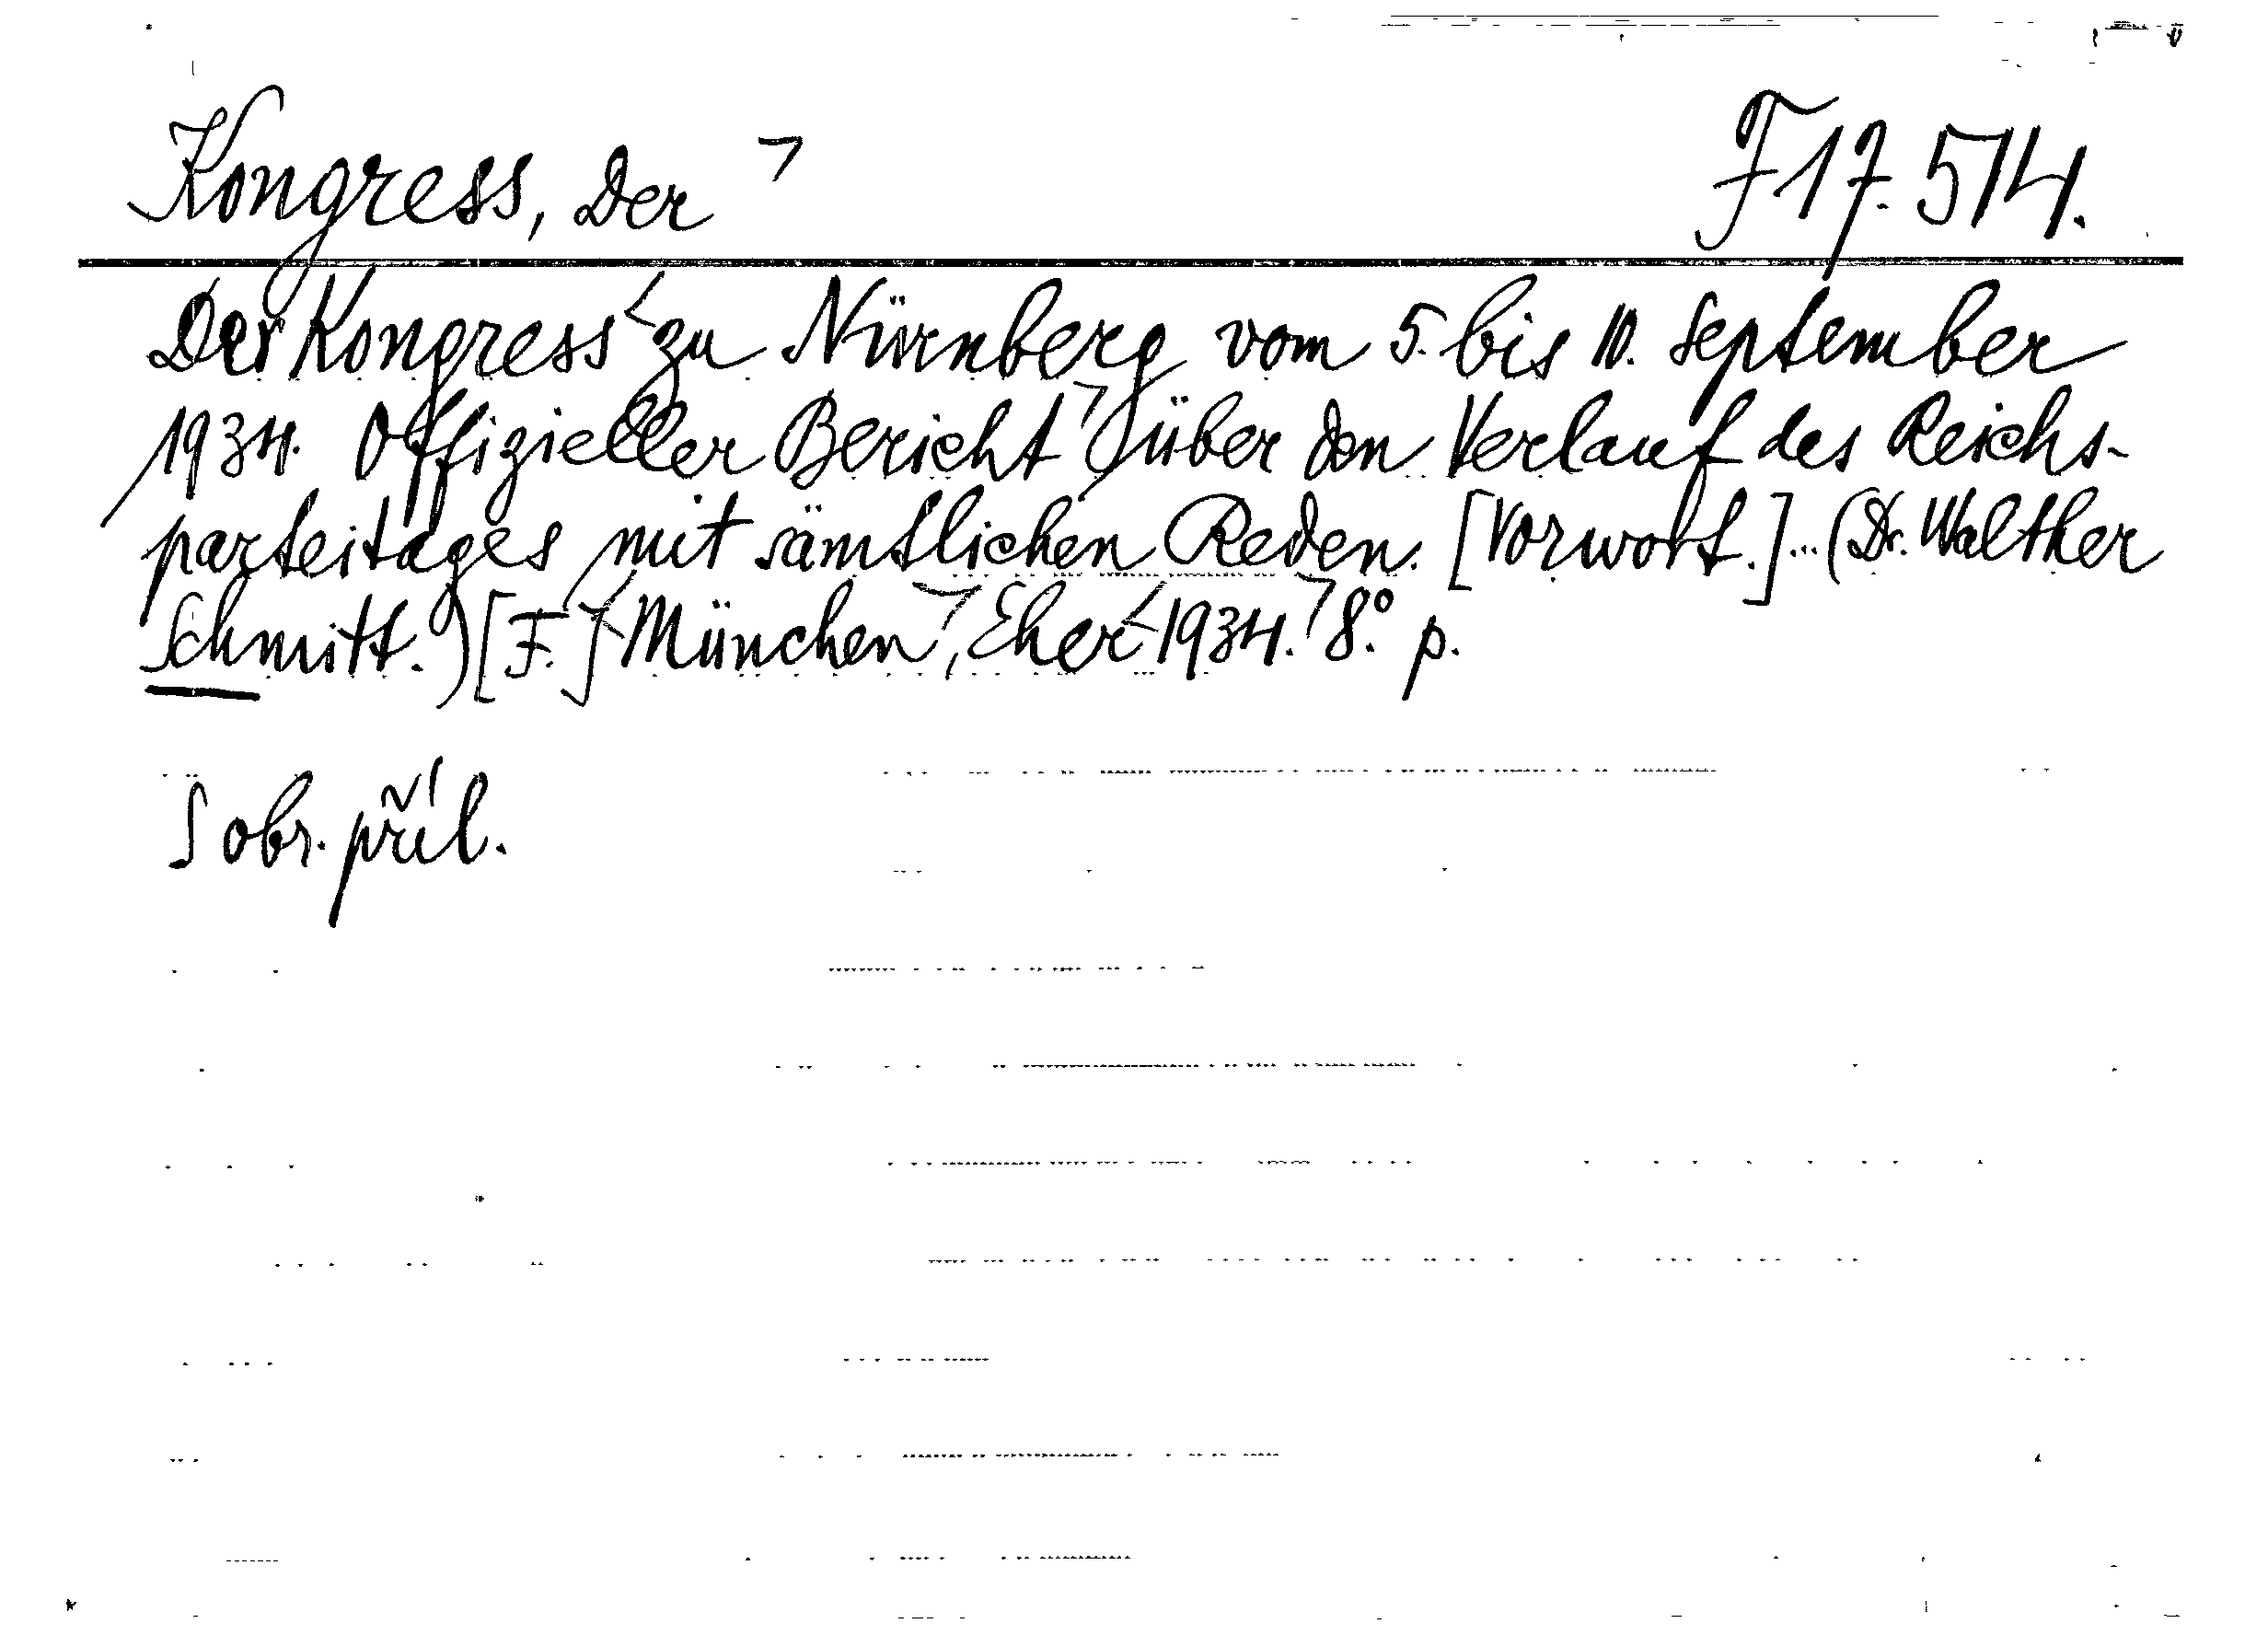 Kongress, Der
F 17.514.
Der Kongress zu Nürnberg vom 5. bis 10. September
1934. Offizieller Bericht über den Verlauf des Reichs-
parteitages mit sämtlichen Reden. [Vorwort.]...(Dr. Walther
Schmitt.) [F.] München, Eher 1934. 8.° p.
S obr. příl.